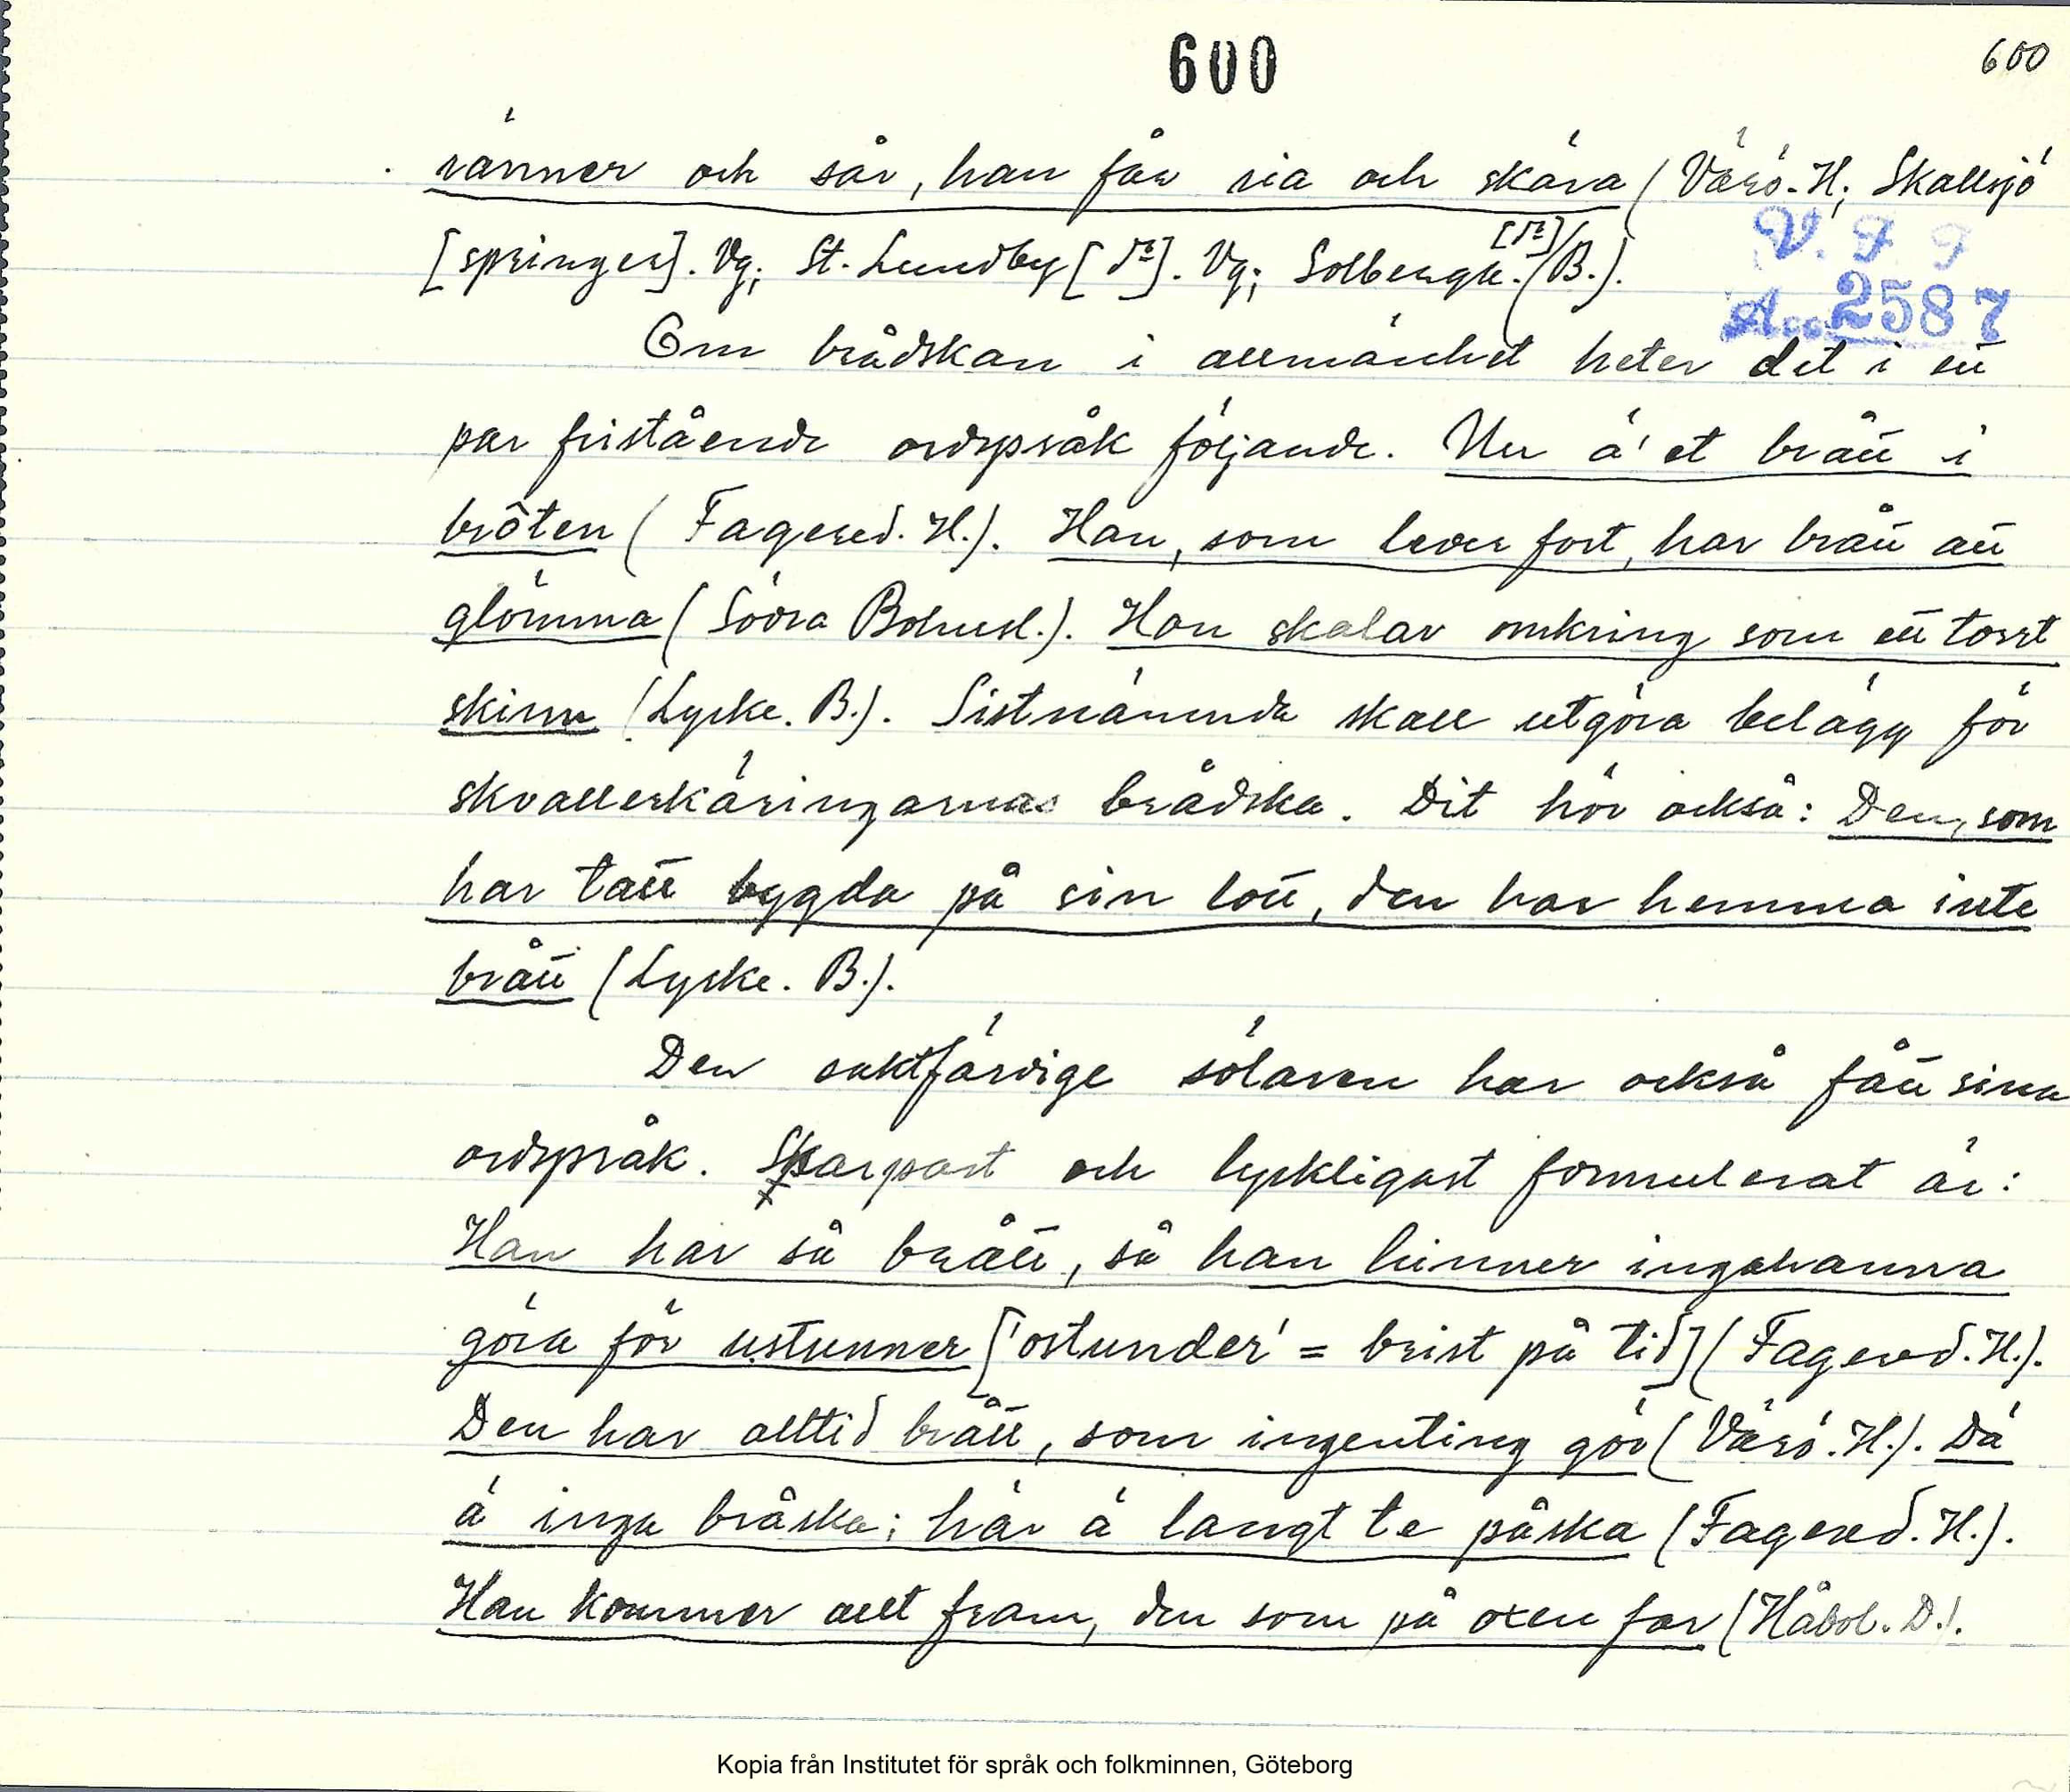 600
600
ränner och sår, han får ria och skära (Värö. H; Skallsjö
[springer]. Vg; St. Lundby [d:o]. Vg; Solbergk. [d:o] (B.).
V. F. F
Acc. 2587
Om brådskan i allmänhet heter det i ett
par fristående ordspråk följande. Nu ä' et brått i
bröten (Fagered. H.). Han, som lever fort, har brått att
glömma (Södra Bohusl.). Hon skalar omkring som ett torrt
skinn (Lycke. B.). Sistnämnda skall utgöra belägg för
skvallerkäringarnas brådska. Dit hör också: Den, som
har tatt bygda på sin lott, den har hemma inte
brått (Lycke. B.).
Den saktfärdige sölaren har också fått sina
ordspråk. Skarpast och lyckligast formulerat är:
Han har så brått, så han hinner ingahanna
göra för ustunner ['ostunder' = brist på tid] (Fagered. H.).
Den har alltid brått, som ingenting gör (Värö. H.). Dä
ä inga bråska; här ä langt te påska (Fagered. H.).
Han kommer allt fram, den som på oxen far (Håbol. D.).
Kopia från Institutet för språk och folkminnen, Göteborg